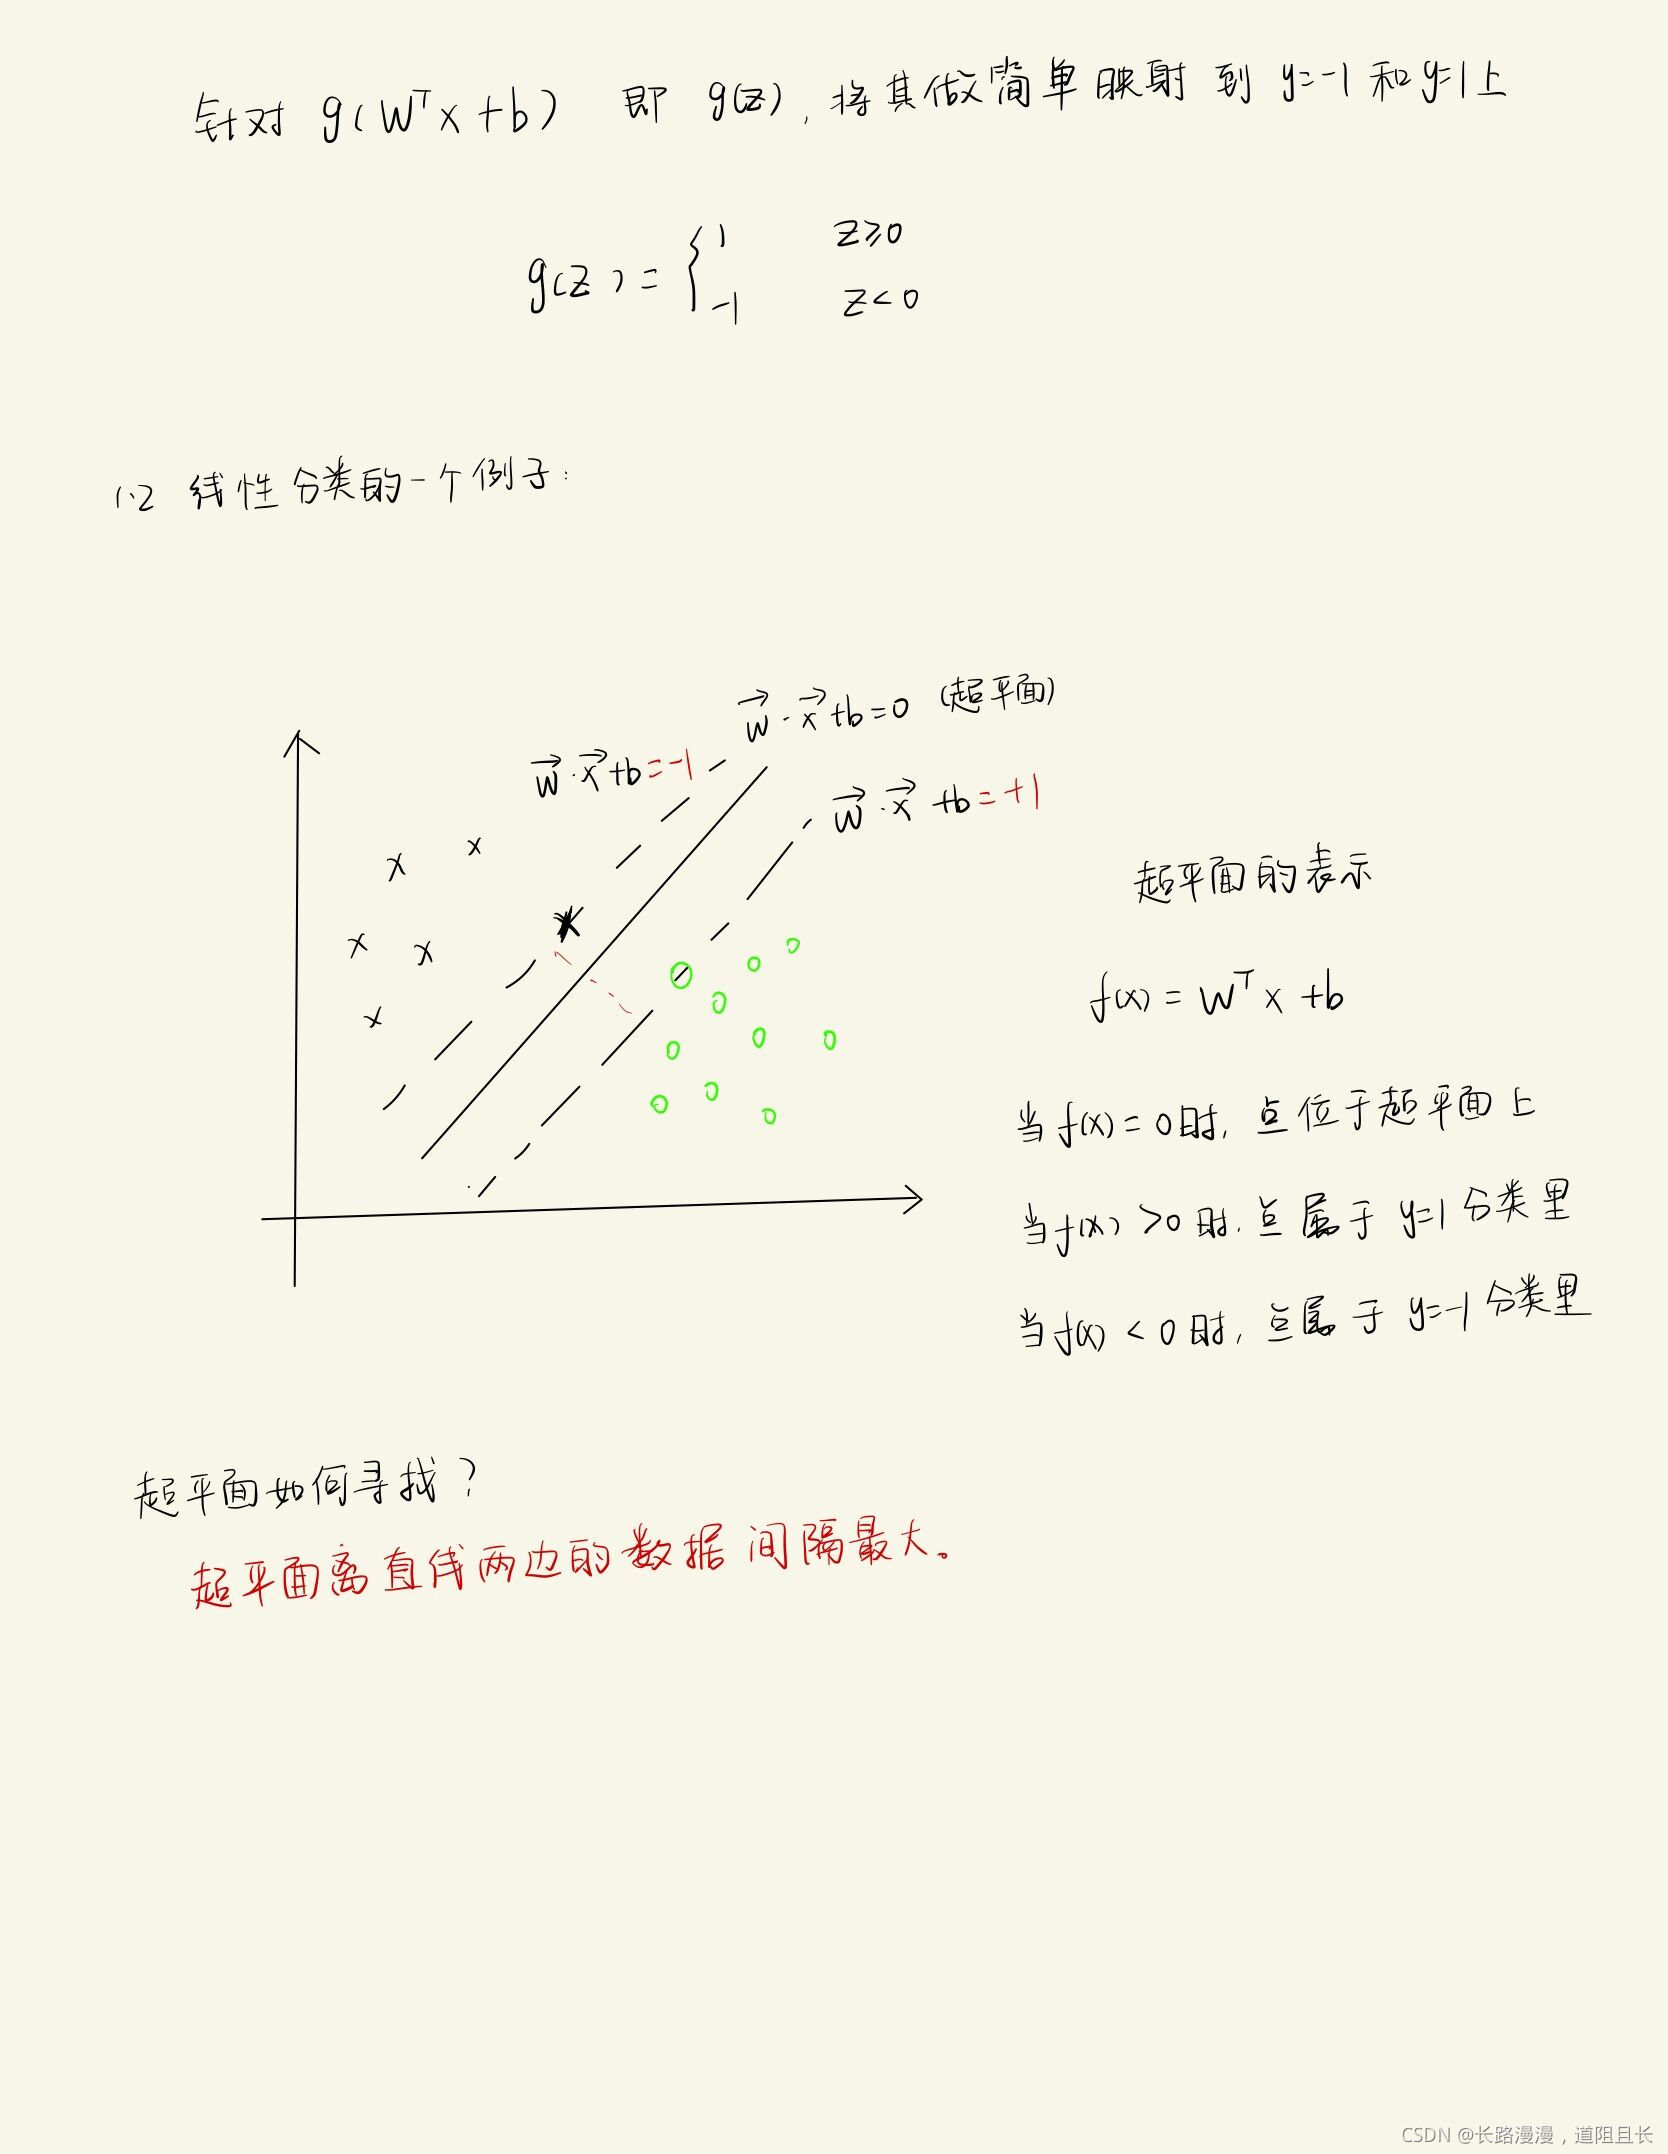 针对 g(Wᵀx+b) 即 g(z), 将其做简单映射到 y=-1 和 y=1上
g(z)={ 1 z≥0
-1 z<0
1.2 线性分类的一个例子:
w⃗·x⃗+b=0 (超平面)
w⃗·x⃗+b=-1
w⃗·x⃗+b=+1
超平面的表示
f(x)=Wᵀx+b
当f(x)=0时, 点位于超平面上
当f(x)>0时. 点属于 y=1 分类里
当f(x)<0时, 点属于 y=-1 分类里
超平面如何寻找?
超平面离直线两边的数据间隔最大。
CSDN @长路漫漫，道阻且长